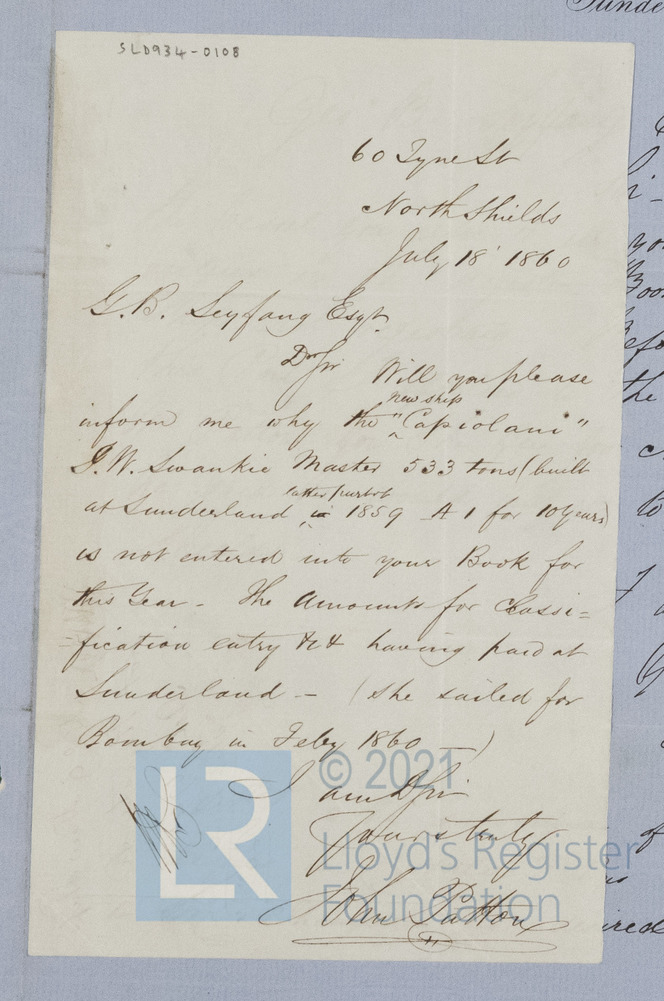 Sunde
SLD934-0108
60 Tyne St
North Shields
July 18 1860
G. B. Seyfang Esqr
Dr Sir Will you please
new ship
inform me why the "Capiolani"
J. W. Swankie Master 533 tons (built
latter part of
at Sunderland in 1859 A 1 for 10 Years)
is not entered into your Book for
this Year - The Amounts for Classi=
=fication entry &c &c having paid at
Sunderland - (She sailed for
Bombay in Feby 1860 - )
I am D Sir
Yours truly
John Patton
LR
© 2021
Lloyd's Register
Foundation